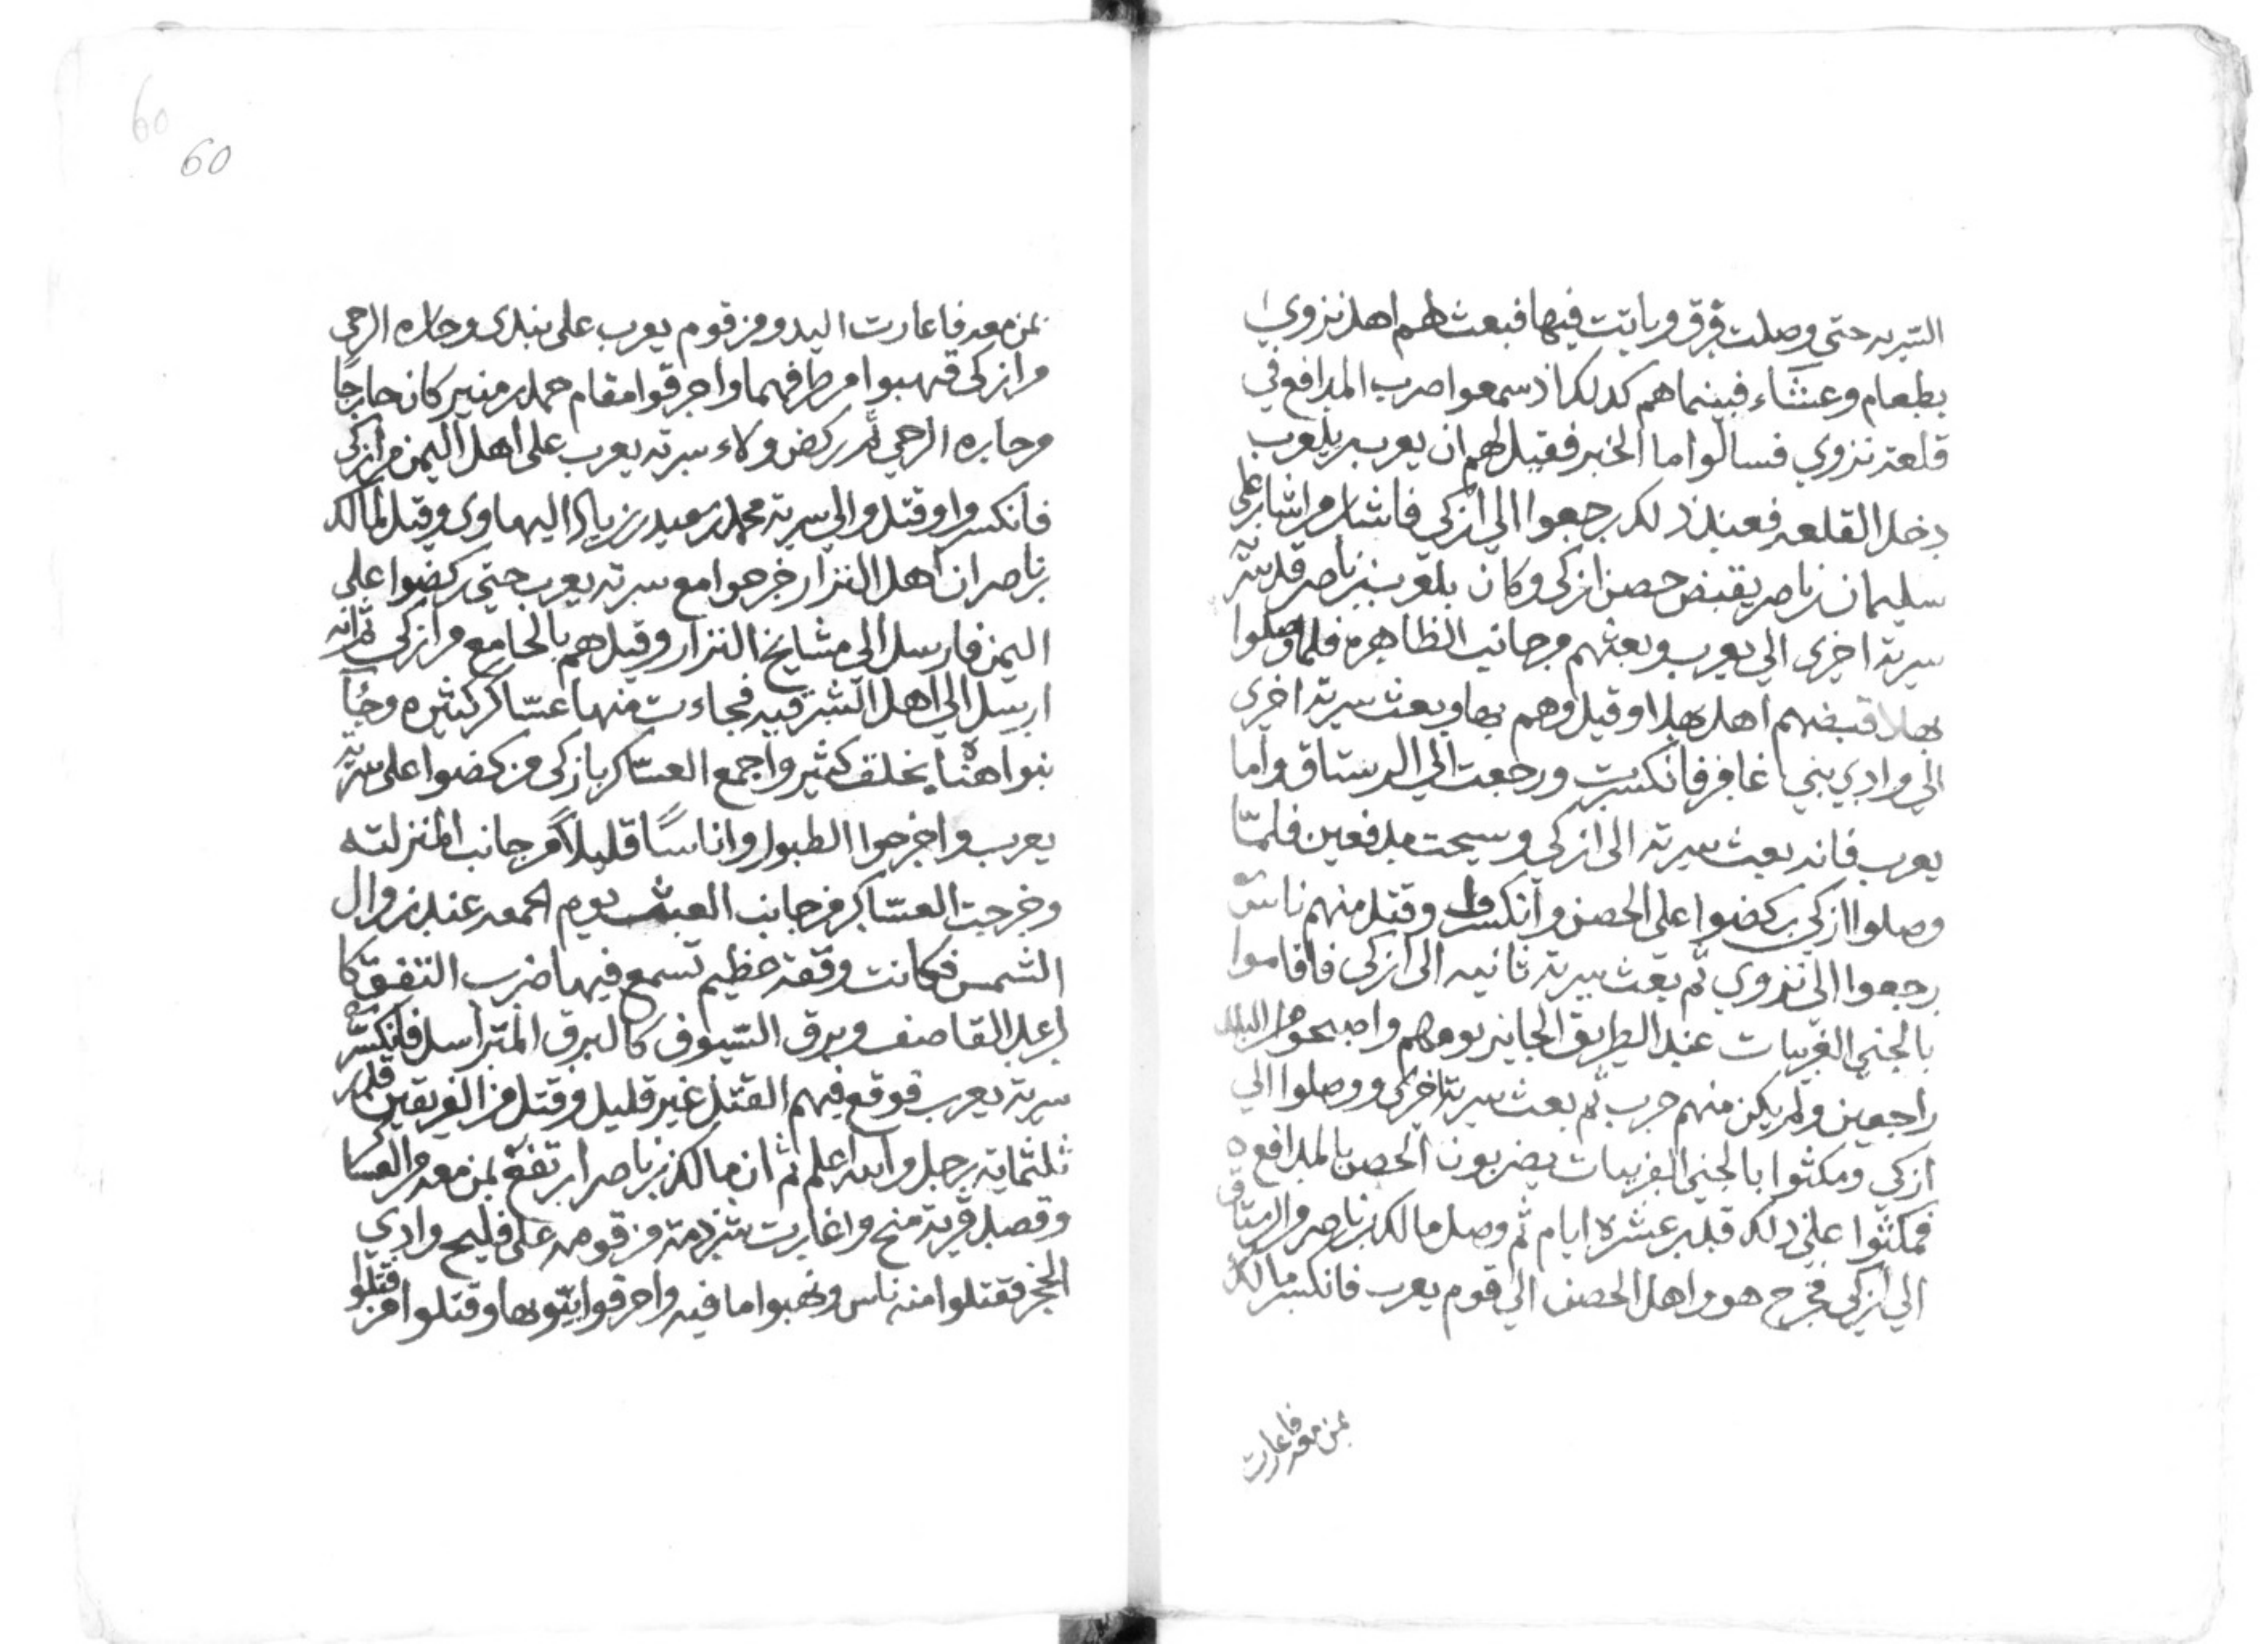 السريه حتى وصلت فرق وباتت فيها فبعث لهم اهل نزوي
بطعام وعشاء فبينما هم كدلك اذ سمعوا ضرب المدافع في
قلعة نزوي فسالوا ما الخبر فقيل لهم ان يعرب بن بلعرب
دخل القلعه فعند ذلك رجعوا الي ازكي فاشار من اشار على
سليمان بن ناصر يقبض حصن ازكي وكان بلعرب بن ناصر قد
سرية اخرى الي يعرب وبعثهم من جانب الظاهره فلما وصلوا
بهلا قبضهم اهل بهلا وقيل وهم بها وبعث سرية اخرى
الي وادي بني غافر فانكسرت ورجعت الي الرستاق واما
يعرب فانه بعث سرية الى ازكي وسيحت مدفعين فلمّا
وصلوا ازكي ركضوا على الحصن وانكسروا وقتل منهم ناس
رجعوا الى نزوي ثم بعث سرية ثانيه الى ازكي فاقاموا
بالجني الغربيات عند الطريق الجايز يومهم واصبحوا من البلد
راجعين ولم يكن منهم حرب ثم بعث سرية اخرى ووصلوا الي
ازكي ومكثوا بالجني الغربيات يضربون الحصن بالمدافع
فمكثوا على ذلك قدر عشرة ايام ثم وصل مالك بن ناصر من الرستاق
الي ازكي فخرج هو واهل الحصن الي قوم يعرب فانكسر مالك
بمن معه فاغارت
60
60
بمن معه فاغارت البدو من قوم يعرب على بندى وحاره الرحى
من ازكى فنهبوا من طرفهما واحرقوا مقام حمله من منير كان خارجًا
وحاره الرحي ثم ركض ولاء سرية يعرب على اهل اليمن من ازكي
فانكسروا وقتل والي سرية محمد بن سعيد بن زياد البهلوي وقيل لمالك
بن ناصر ان اهل النزار خرجوا مع سرية يعرب حتى ركضوا على
اليمن فارسل الى مشايخ النزار وقيدهم بالجامع من ازكي ثم انه
ارسل الى اهل الشرقيه فجاءت منها عساكر كثيره وجاء
بنو اهناه بخلق كثير واجمع العساكر بازكى وركضوا على سرية
يعرب واخرجوا الطبول واناسًا قليلاً من جانب المنزليه
وخرجت العساكر من جانب العبشى يوم الجمعه عند زوال
الشمس فكانت وقعة عظيم تسمع فيها ضرب التفق كا
لرعد القاصف وبرق السيوف كالبرق المتراسل فانكسرت
سرية يعرب فوقع فيهم القتل غير قليل وقتل من الفريقين قدر
ثلثمايه رجل والله اعلم ثم ان مالك بن ناصر ارتفع بمن معه من العساكر
وقصد قرية منح واغارت شرذمة من قومه على فليج وادي
الحجر فقتلوا منه ناس ونهبوا ما فيه واحرقوا بيوتها وقتلوا من قتلوا